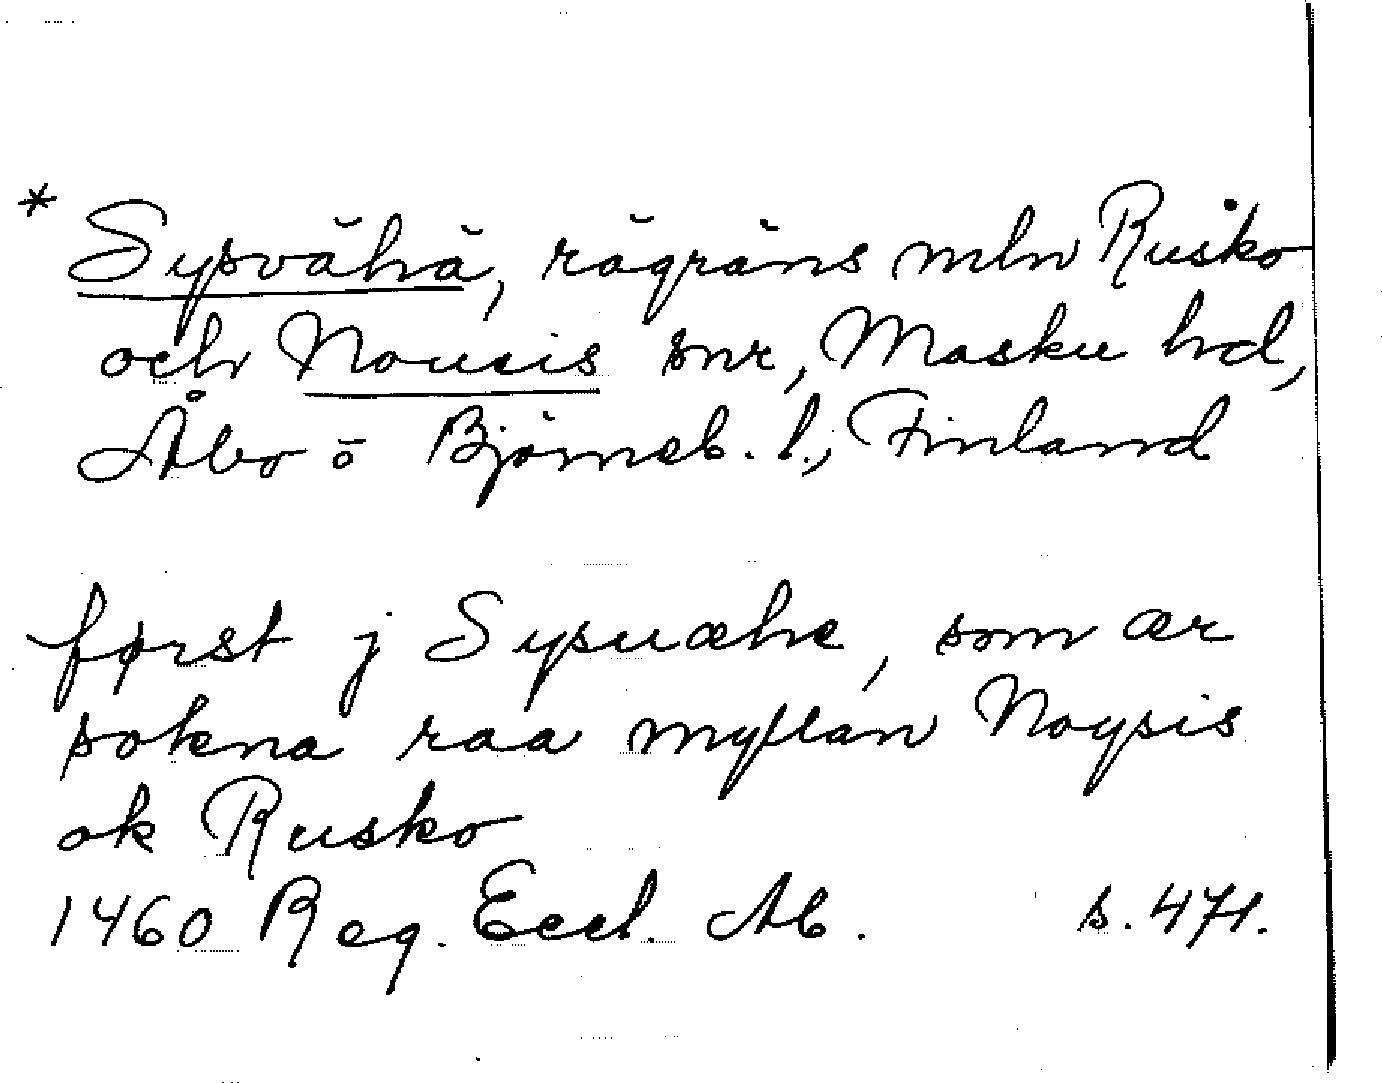 * Sypvähä, rågräns mln Rusko
och Nousis snr, Masku hd,
Åbo o Björneb. l., Finland
først j Sypuæhe, som ær
sokna raa myllan Noysis
ok Rusko
1460 Reg. Eccl. Ab. s. 471.